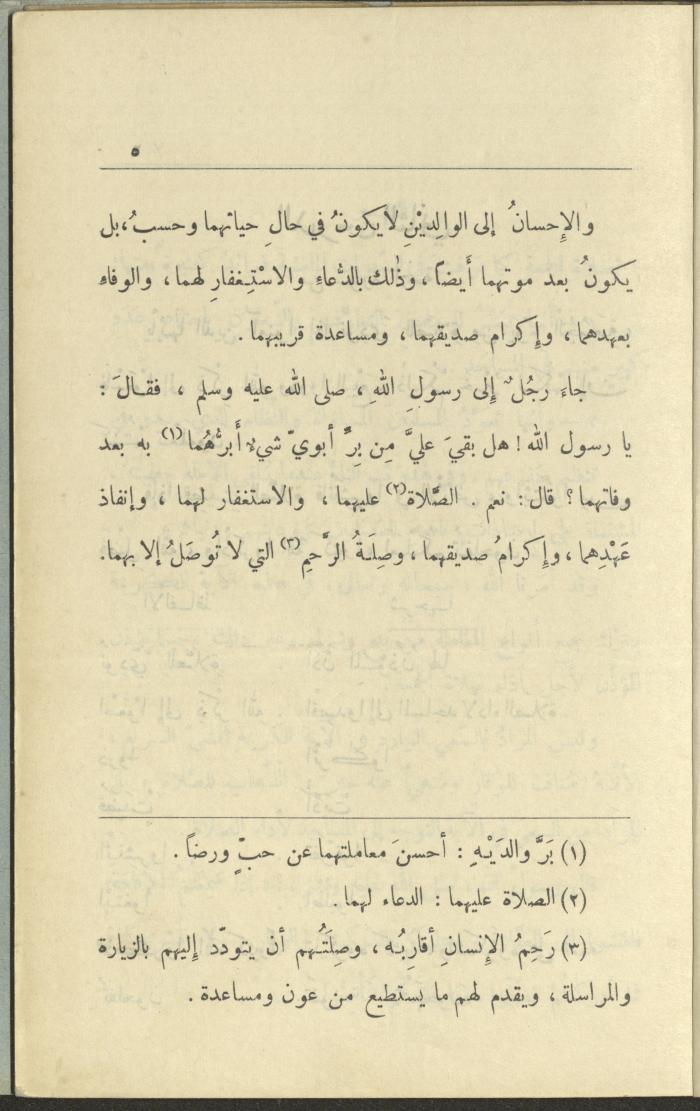 ٥
والإِحسانُ إلى الوالِديْنِ لا يكونُ في حالِ حياتهما وحسبُ، بل
يكونُ بعد موتهما أَيضاً، وذٰلك بالدُّعاءِ والاسْتِغفارِ لهما، والوفاءِ
بعهدهما، وإِكرام صديقهما، ومساعدة قريبهما.
جاءَ رجُلٌ إِلى رسولِ اللهِ، صلى الله عليه وسلم، فقالَ:
يا رسول الله! هل بقيَ عليَّ مِن بِرِّ أبويّ شيءٌ أَبرُّهُما (١) به بعد
وفاتهما؟ قال: نعم. الصَّلاة (٢) عليهما، والاستغفار لهما، وإنفاذ
عَهْدِهما، وإِكرامُ صديقهما، وصِلَةُ الرَّحِمِ (٣) التي لا تُوصَلُ إلا بهما.
(١) بَرَّ والدَيْهِ: أحسنَ معاملتهما عن حبٍّ ورضاً.
(٢) الصلاة عليهما: الدعاء لهما.
(٣) رَحِمُ الإِنسانِ أقارِبُه، وصِلَتُهم أن يتودّد إِليهم بالزيارة
والمراسلة، ويقدم لهم ما يستطيع من عون ومساعدة.